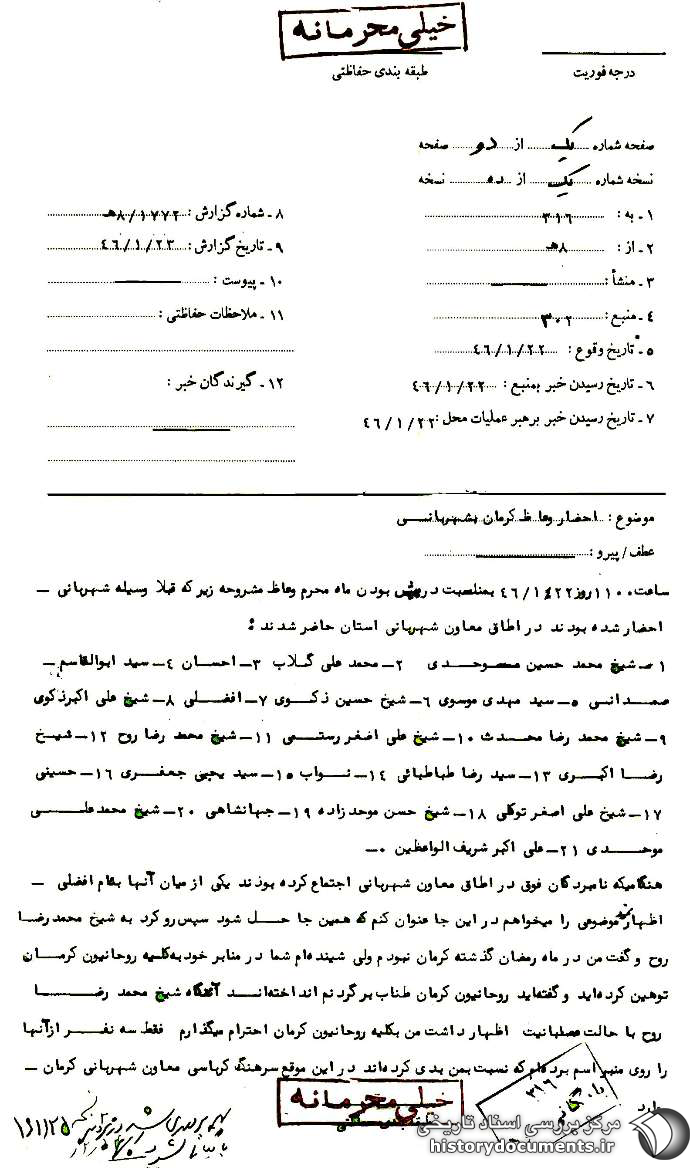 خیلی محرمانه
درجه فوریت
طبقه بندی حفاظتی
صفحه شماره یک از دو صفحه
نسخه شماره یک از ده نسخه
۱ - به : ۳۱۶
۲ - از : ۸هـ
۳ - منشأ :
۴ - منبع : ۳۰۲
۵ - تاریخ وقوع : ۴۶/۱/۲۲
۶ - تاریخ رسیدن خبر بمنبع : ۴۶/۱/۲۲
۷ - تاریخ رسیدن خبر برهبر عملیات محل : ۴۶/۱/۲۲
۸ - شماره گزارش : ۸/۱۷۷۲هـ
۹ - تاریخ گزارش : ۴۶/۱/۲۳
۱۰ - پیوست :
۱۱ - ملاحظات حفاظتی :
۱۲ - گیرندگان خبر :
موضوع : احضار وعاظ کرمان بشهربانی
عطف / پیرو :
ساعت ۱۱۰۰ روز ۴۶/۱/۲۲ بمناسبت در پیش بودن ماه محرم وعاظ مشروحه زیر که قبلا وسیله شهربانی –
احضار شده بودند در اطاق معاون شهربانی استان حاضر شدند :
۱ – شیخ محمد حسین موحدی ۲ – محمد علی گلاب ۳ – احسان ۴ – سید ابوالقاسم –
صمدانی ۵ – سید مهدی موسوی ۶ – شیخ حسین ذکوی ۷ – افضلی ۸ – شیخ علی اکبر ذکوی
۹ – شیخ محمد رضا محدث ۱۰ – شیخ علی اصغر رستمی ۱۱ – شیخ محمد رضا روح ۱۲ – شیخ
رضا اکبری ۱۳ – سید رضا طباطبائی ۱۴ – نواب ۱۵ – سید یحیی جعفری ۱۶ – حسینی
۱۷ – شیخ علی اصغر توکلی ۱۸ – شیخ حسن موحدزاده ۱۹ – جهانشاهی ۲۰ – شیخ محمد علی
موحدی ۲۱ – علی اکبر شریف الواعظین ۰ –
هنگامیکه نامبردگان فوق در اطاق معاون شهربانی اجتماع کرده بودند یکی از میان آنها بنام افضلی –
اظهار موضوعی را میخواهم در این جا عنوان کنم که همین جا حل شود سپس رو کرد به شیخ محمد رضا
روح و گفت من در ماه رمضان گذشته کرمان نبودم ولی شنیده‌ام شما در منابر خود به کلیه روحانیون کرمان
توهین کرده‌اید و گفته‌اید روحانیون کرمان طناب بر گردنم انداخته‌اند آنگاه شیخ محمد رضا
روح با حالت عصبانیت اظهار داشت من بکلیه روحانیون کرمان احترام میگذارم فقط سه نفر از آنها
را روی منبر اسم برده‌ام که نسبت بمن بدی کرده‌اند در این موقع سرهنگ کرباسی معاون شهربانی کرمان –
خیلی محرمانه
۳۱۶
مرکز بررسی اسناد تاریخی
historydocuments.ir